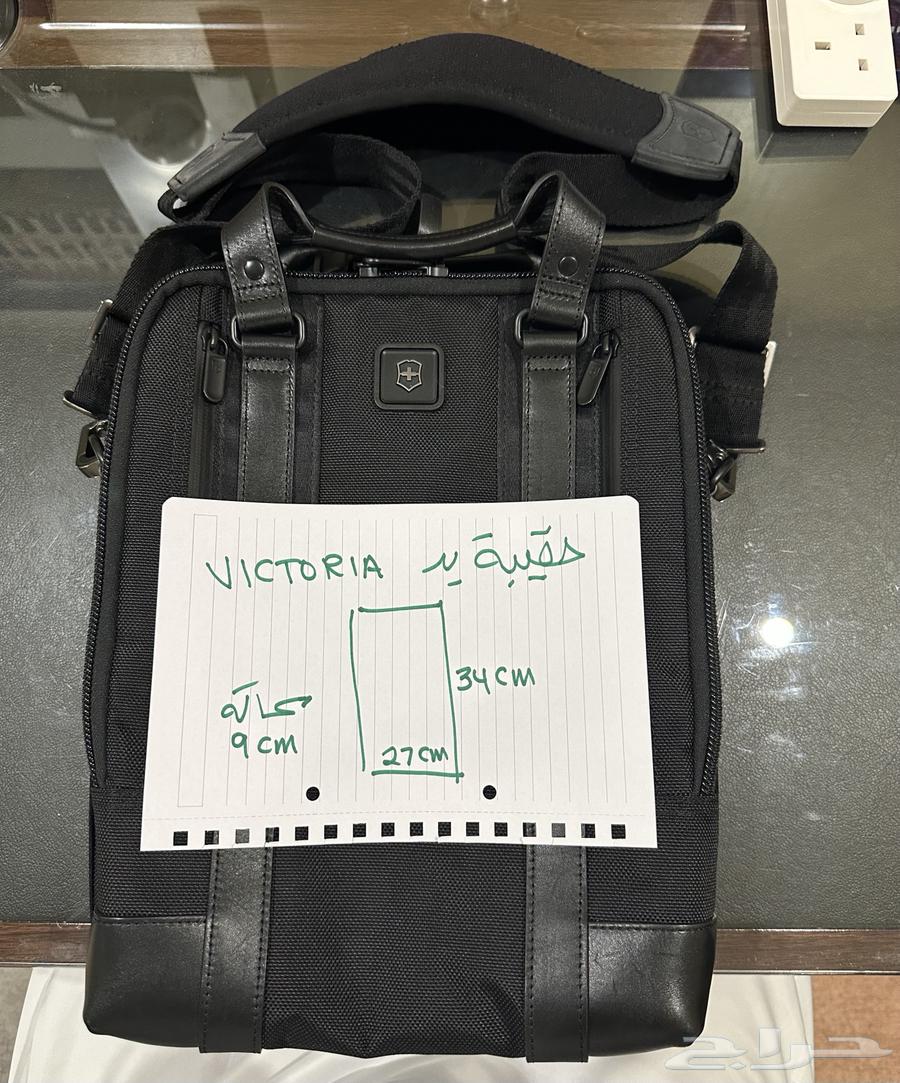 حقيبة يد VICTORIA
34 cm
سماكة
9 cm
27 cm
حراج